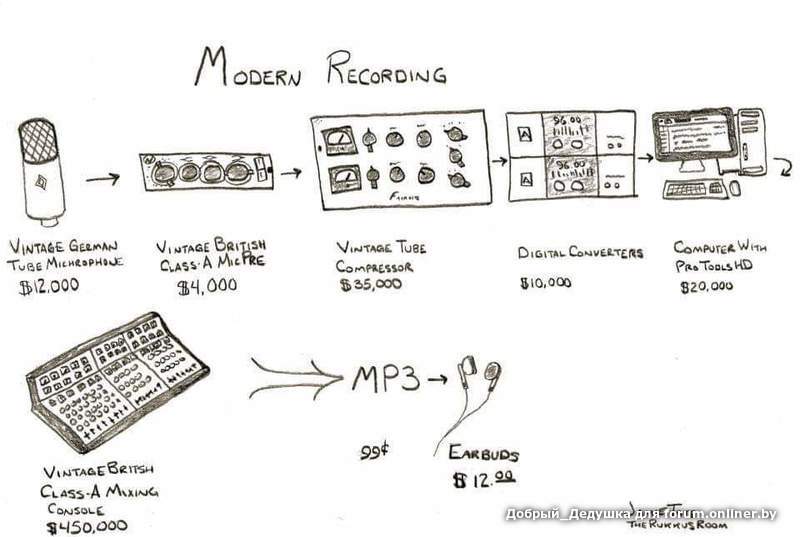 MODERN RECORDING
96.00
96.00
VINTAGE GERMAN
TUBE MICHROPHONE
$12,000
VINTAGE BRITISH
CLASS-A MIC PRE
$4,000
VINTAGE TUBE
COMPRESSOR
$35,000
DIGITAL CONVERTERS
$10,000
COMPUTER WITH
PRO TOOLS HD
$20,000
MP3
99¢
EARBUDS
$12.00
VINTAGE BRITSH
CLASS-A MIXING
CONSOLE
$450,000
Добрый_Дедушка для forum.onliner.by
THE RUKKUS ROOM